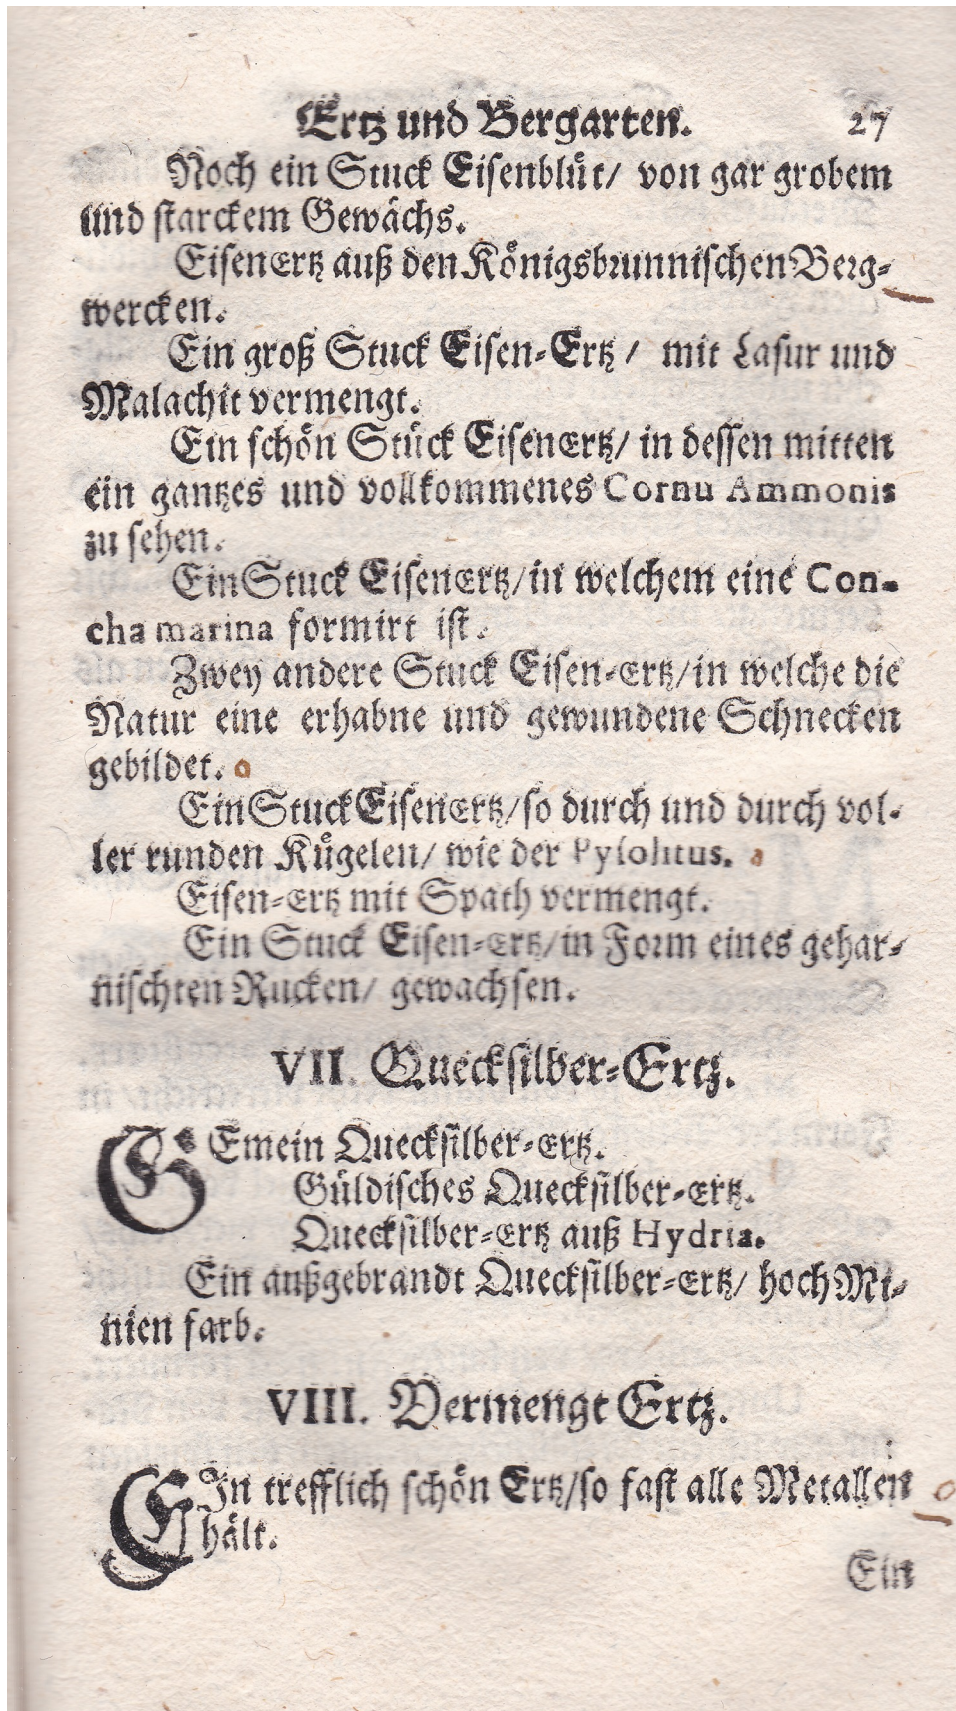 Ertz und Bergarten. 27
Noch ein Stuck Eisenblüt/ von gar grobem
und starckem Gewächs.
Eisenertz auß den Königsbrunnischen Berg-
wercken.
Ein groß Stuck Eisen-Ertz / mit Lasur und
Malachit vermengt.
Ein schön Stück Eisenertz/ in dessen mitten
ein gantzes und vollkommenes Cornu Ammonis
zu sehen.
Ein Stuck Eisenertz/in welchem eine Con-
cha marina formirt ist.
Zwey andere Stuck Eisen-ertz/in welche die
Natur eine erhabne und gewundene Schnecken
gebildet.
Ein Stuck Eisenertz/so durch und durch vol-
ler runden Kügelen/ wie der
Eisen-ertz mit Spath vermengt.
Ein Stuck Eisen-ertz/in Form eines gehar-
nischten Rucken/ gewachsen.
VII. Quecksilber-Ertz.
GEmein Quecksilber-ertz.
Güldisches Quecksilber-ertz.
Quecksilber-ertz auß Hydria.
Ein außgebrandt Quecksilber-ertz/ hoch Mi-
nien farb.
VIII. Vermengt Ertz.
EIn trefflich schön Ertz/so fast alle Metallen
hält.
Ein